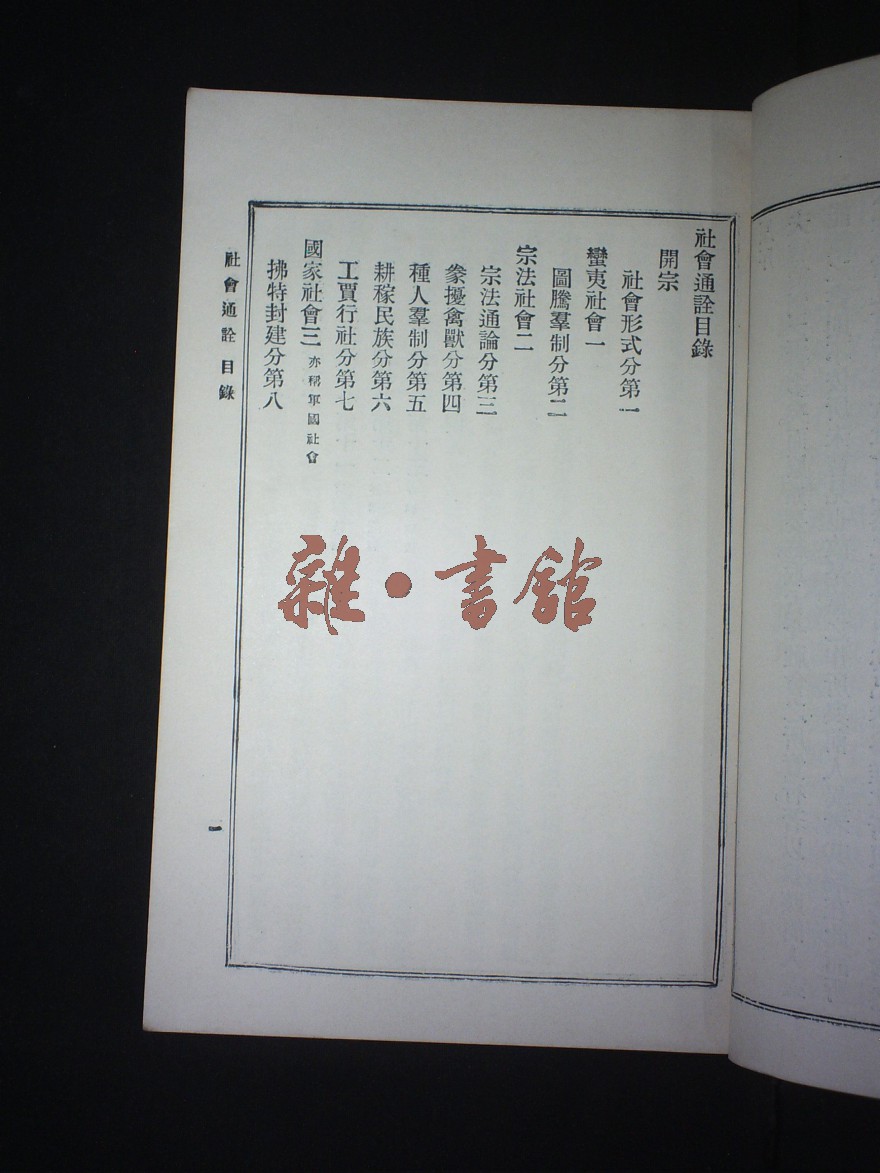 社會通詮目錄
開宗
社會形式分第一
蠻夷社會一
圖騰羣制分第二
宗法社會二
宗法通論分第三
豢擾禽獸分第四
種人羣制分第五
耕稼民族分第六
工賈行社分第七
國家社會三 亦稱軍國社會
拂特封建分第八
社會通詮 目錄
一
雜·書館